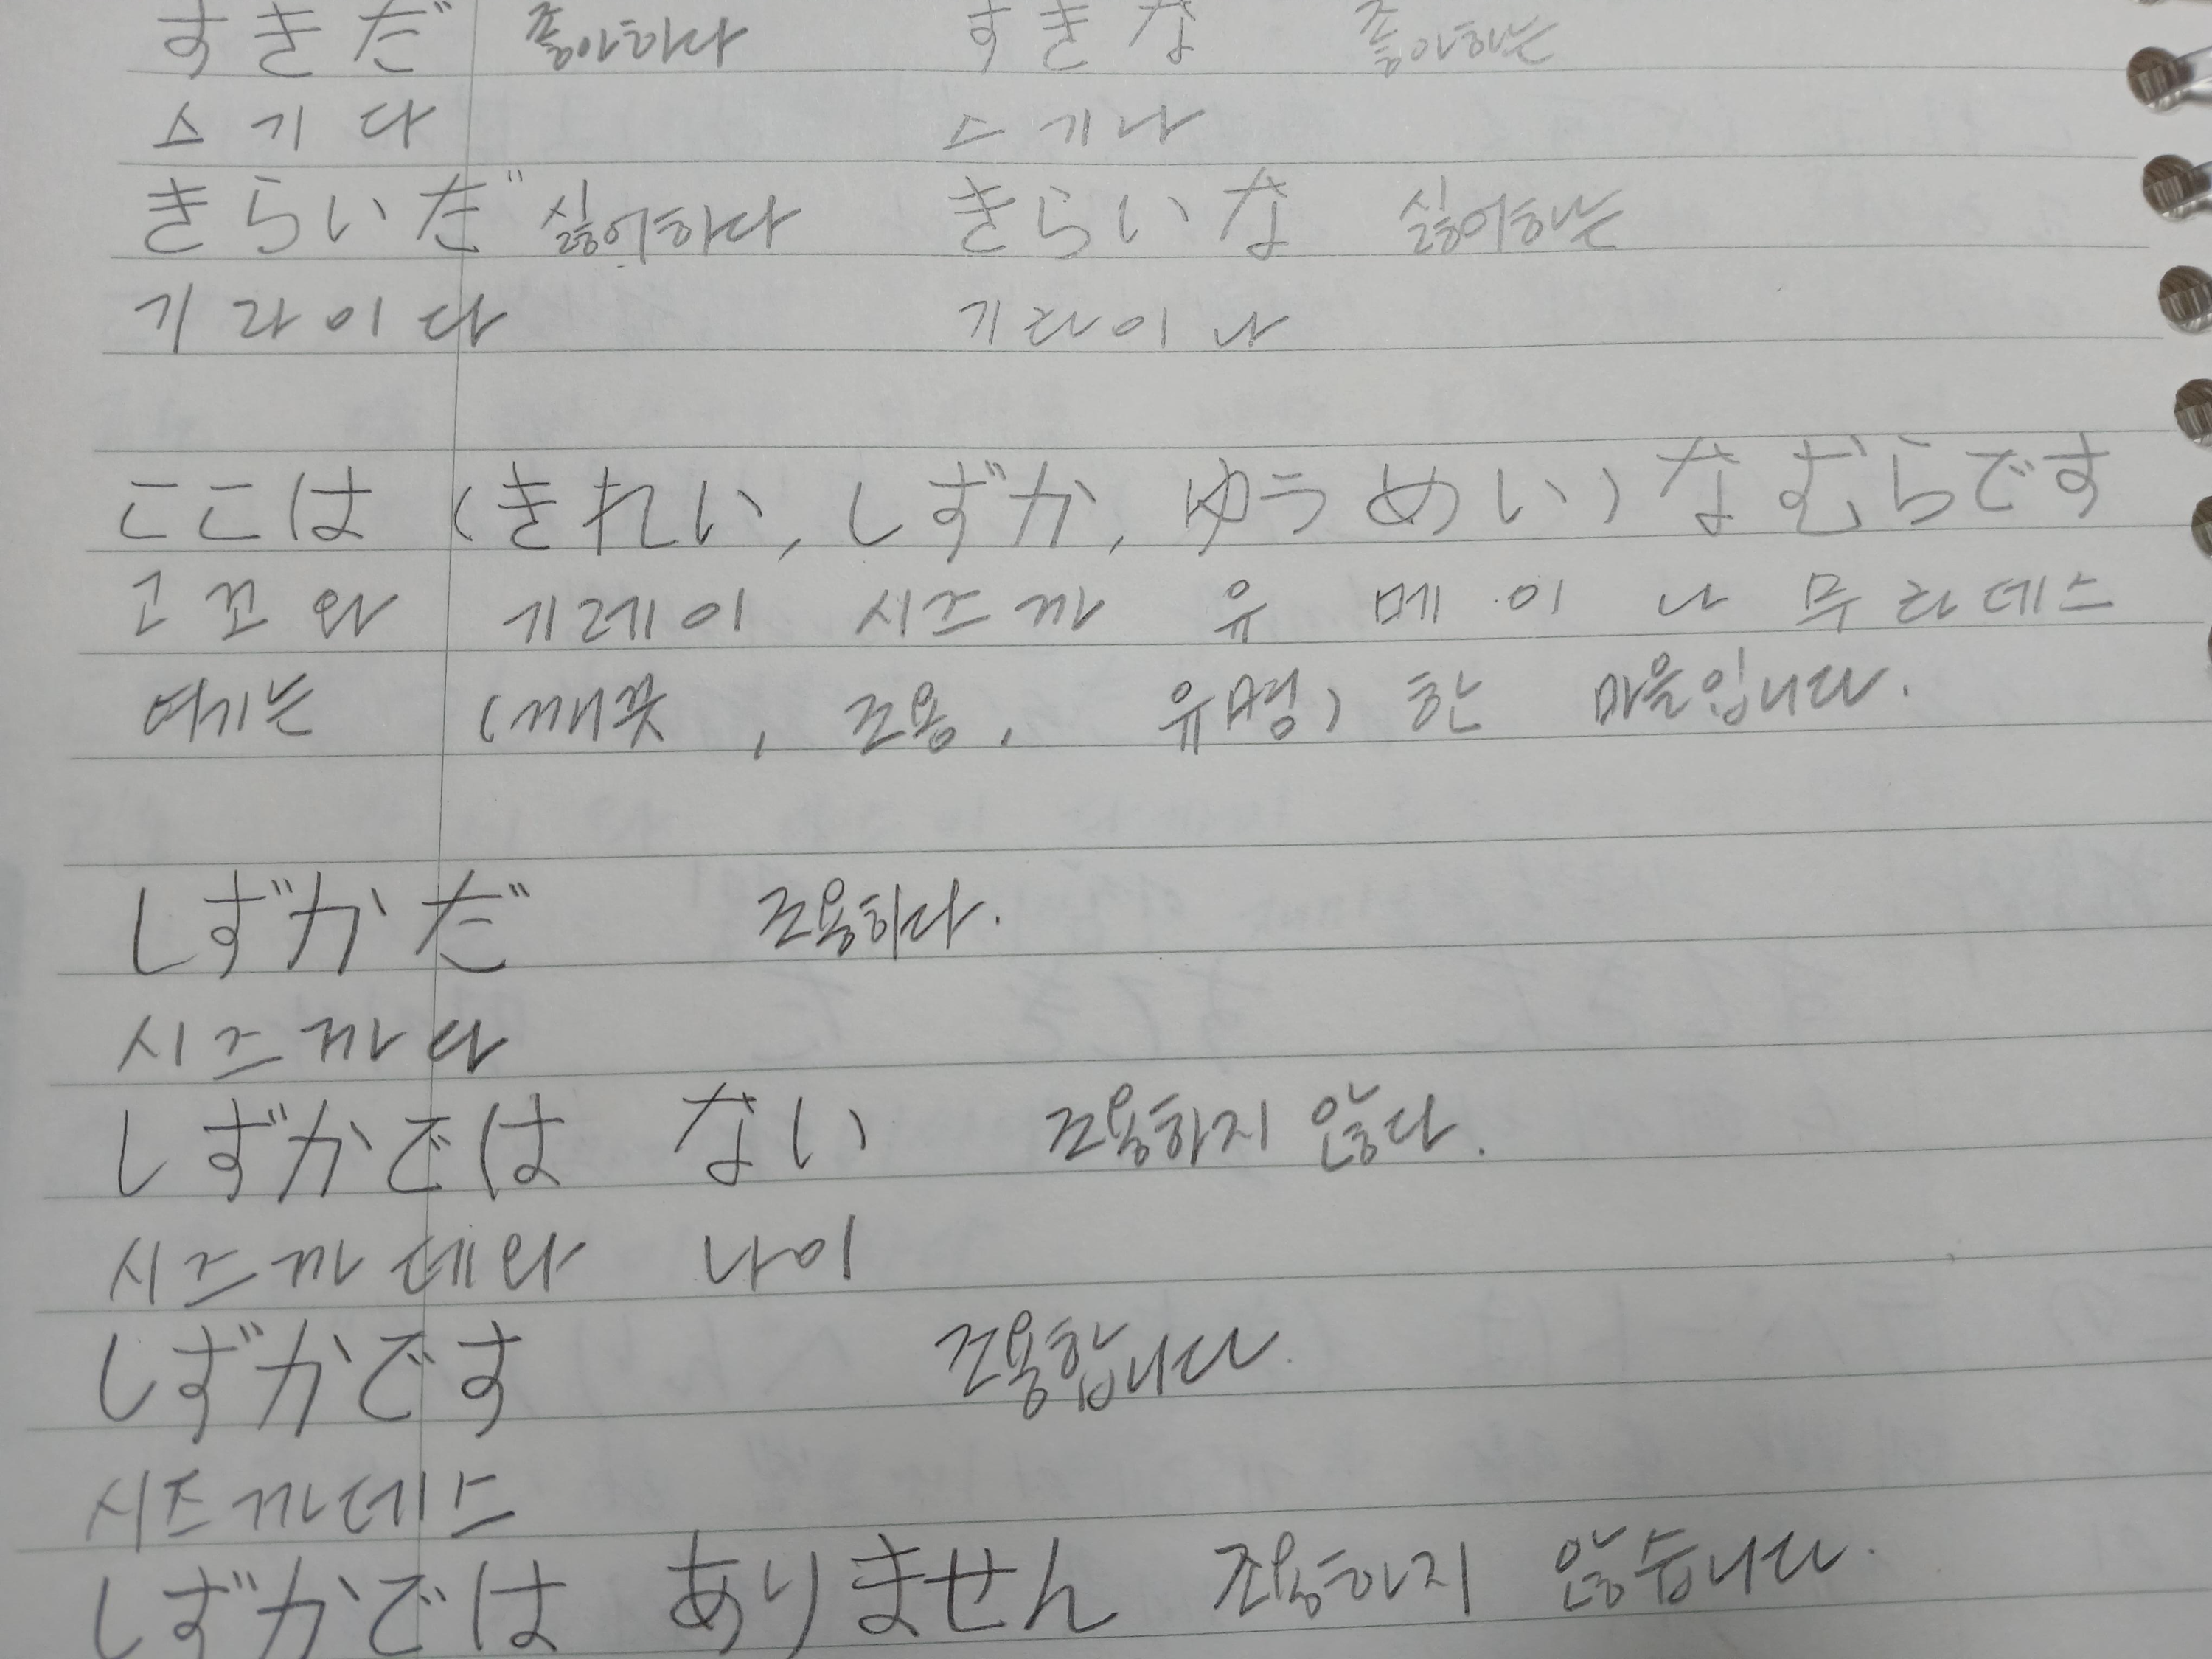 すきだ 좋아하다 すきな 좋아하는
스기다 스기나
きらいだ 싫어하다 きらいな 싫어하는
기라이다 기라이나
ここは (きれい, しずか, ゆうめい) なむらです
고꼬와 기레이 시즈까 유메이나 무라데스
여기는 (깨끗, 조용, 유명) 한 마을입니다.
しずかだ 조용하다.
시즈까다
しずかでは ない 조용하지 않다.
시즈까데와 나이
しずかです 조용합니다.
시즈까데스
しずかでは ありません 조용하지 않습니다.